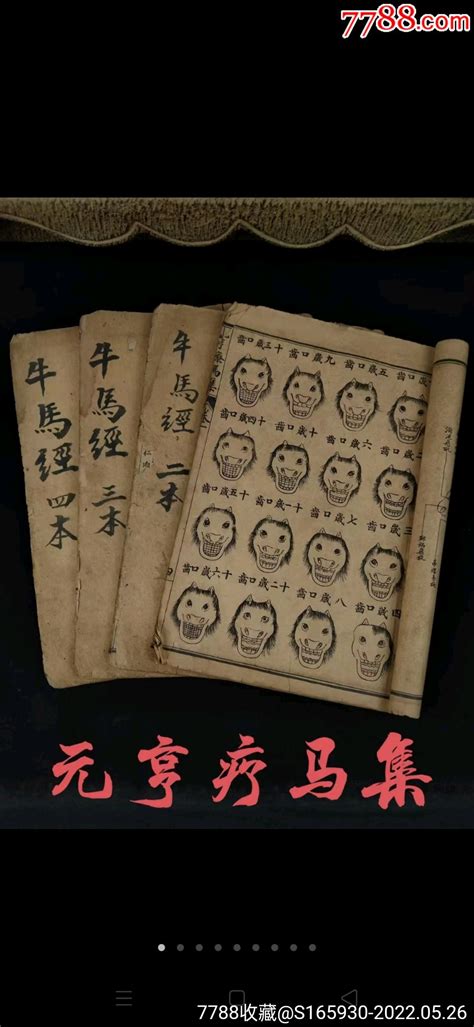 7788.com
牛馬經 四本
牛馬經 三本
牛馬經 二本
療馬集
五歲口齒 九歲口齒 十三歲口齒
六歲口齒 十歲口齒 十四歲口齒
七歲口齒 十一歲口齒 十五歲口齒
四歲口齒 八歲口齒 十二歲口齒 十六歲口齒
元亨疗马集
7788收藏@S165930-2022.05.26